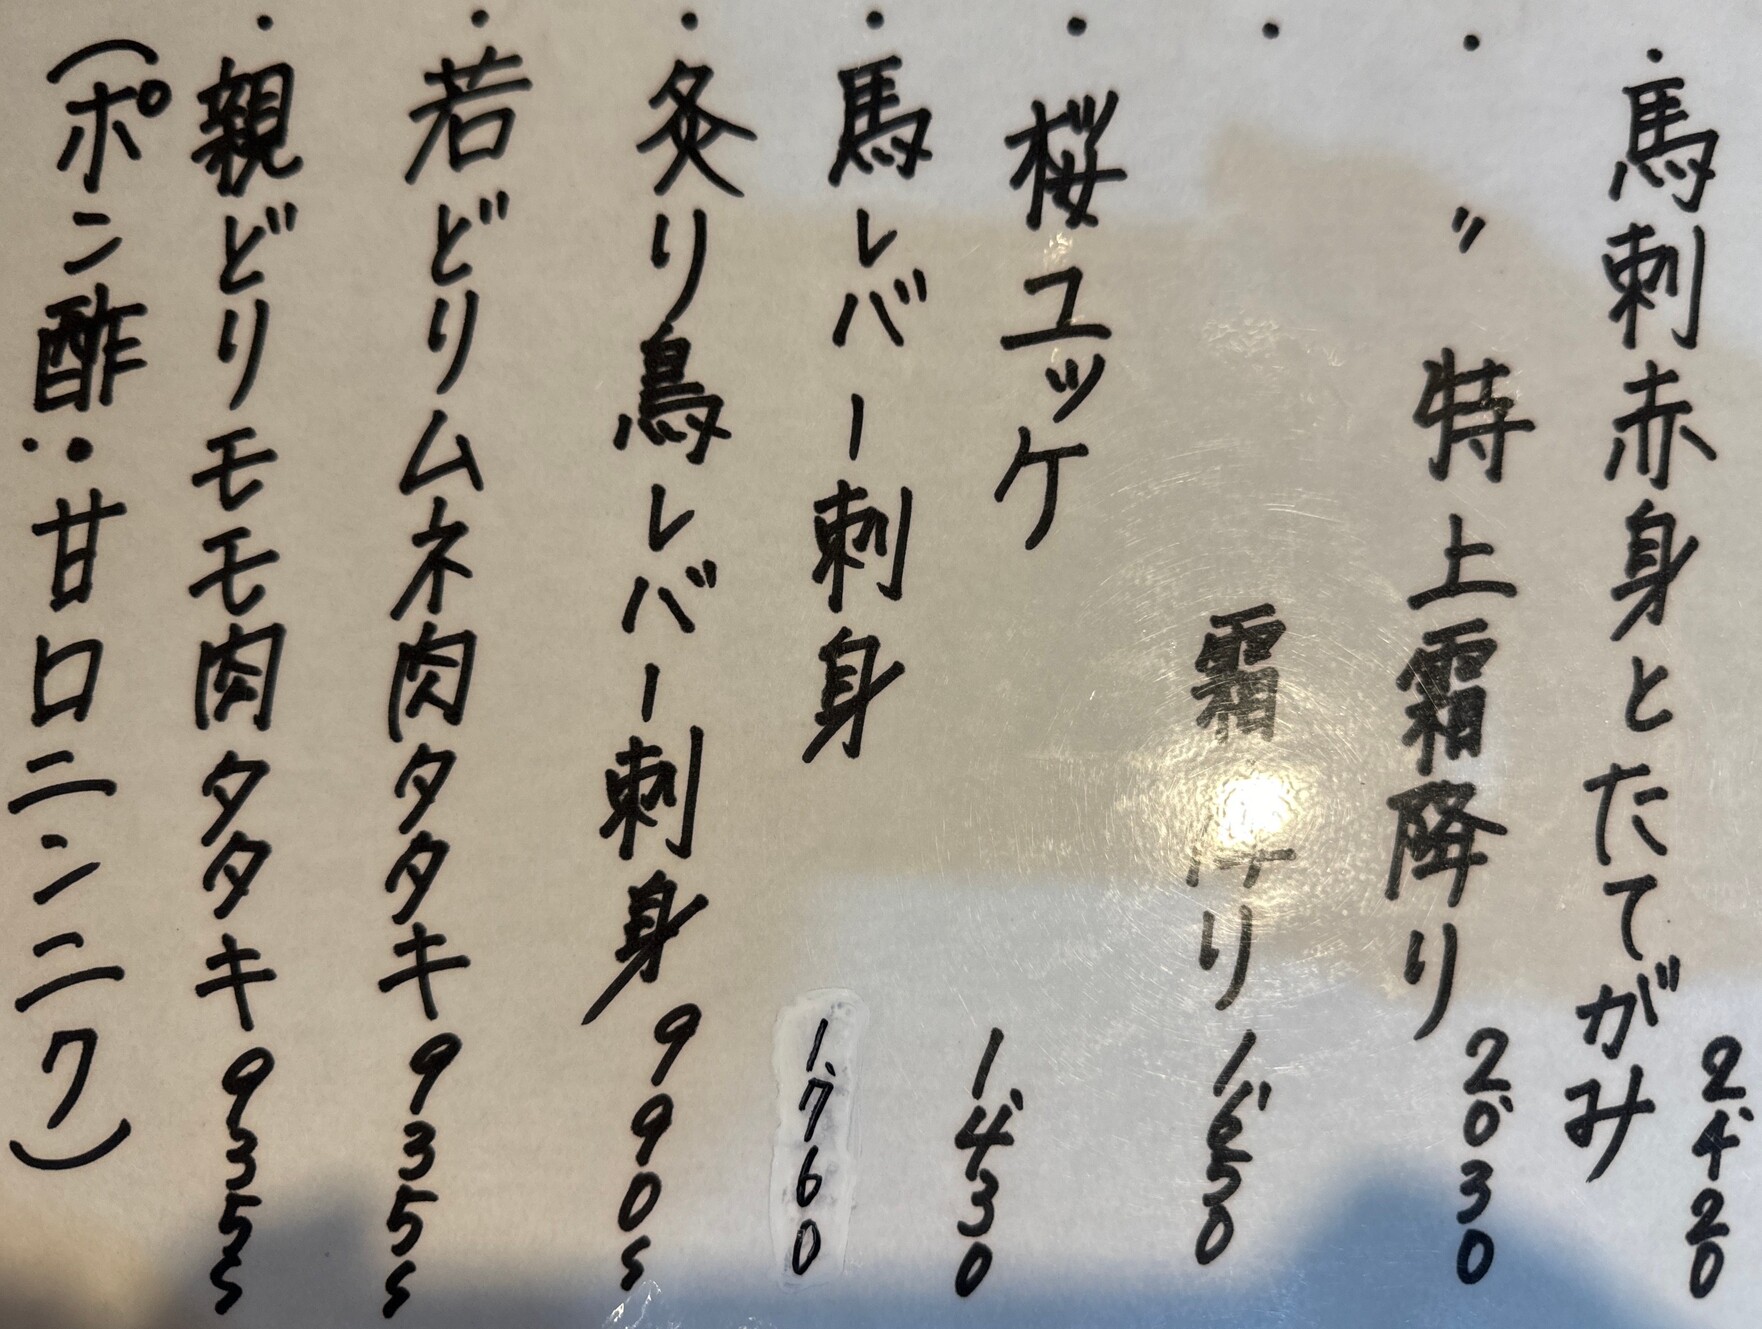 ・馬刺赤身とたてがみ 2,420
・〃 特上霜降り 2,030
・霜降り 1,650
・桜ユッケ 1,430
・馬レバー刺身 1,760
・炙り鳥レバー刺身 990〜
・若どりムネ肉タタキ 935〜
・親どりモモ肉タタキ 935〜
(ポン酢:甘口ニンニク)